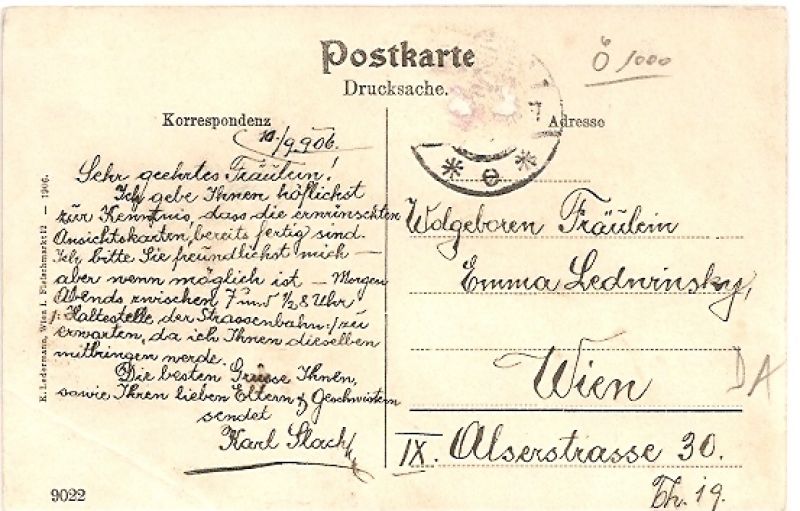 Postkarte
Drucksache.
Ö 1000
Korrespondenz
Adresse
10./9.906.
Sehr geehrtes Fräulein!
Ich gebe Ihnen höflichst
zur Kenntnis, dass die erwünschten
Ansichtskarten bereits fertig sind.
Ich bitte Sie freundlichst mich —
aber wenn möglich ist — Morgen
Abends zwischen 7 u. ½ 8 Uhr
/: Haltestelle der Strassenbahn :/ zu
erwarten, da ich Ihnen dieselben
mitbringen werde.
Die besten Grüsse Ihnen,
sowie Ihren lieben Eltern & Geschwistern
sendet
Karl Slach
Wolgeboren Fräulein
Emma Ledwinsky,
Wien
DA
IX. Alserstrasse 30.
Th. 19.
E. Ledermann, Wien I. Fleischmarkt 12 — 1906.
9022
* e *